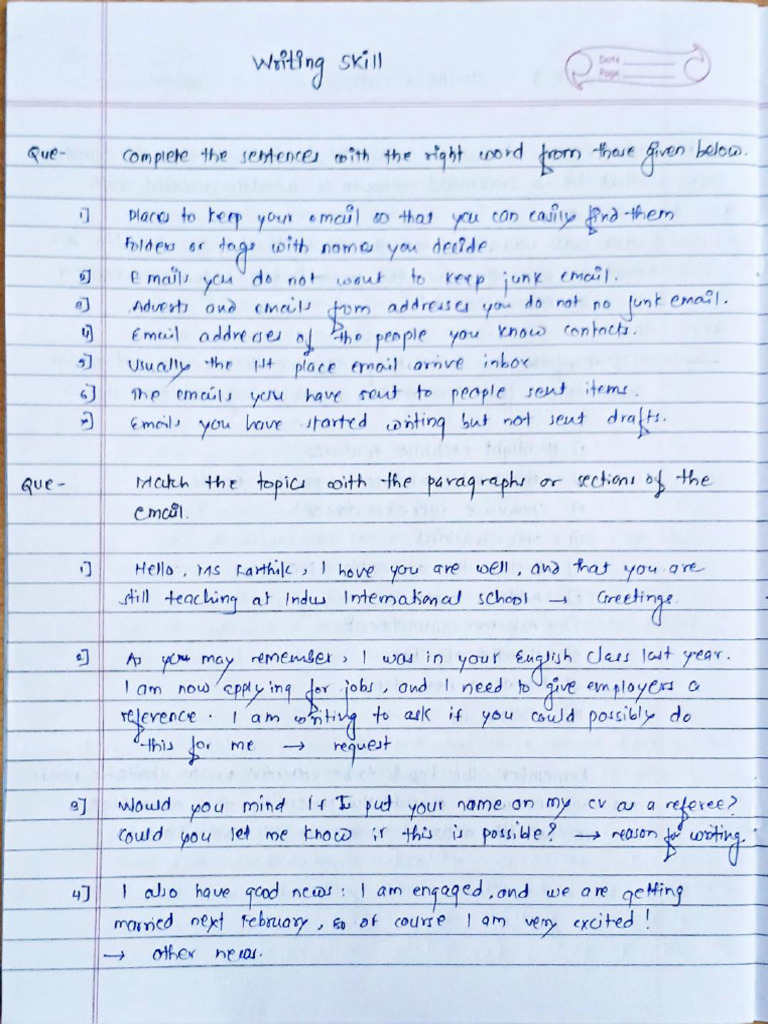 Writing Skill
Date
Page
Que- Complete the sentences with the right word from those given below.
1] Places to keep your email so that you can easily find them
Folders or tags with names you decide.
2] Emails you do not want to keep junk email.
3] Adverts and emails from addresses you do not no junk email.
4] Email addresses of the people you know contacts.
5] Usually the 1st place email arrive inbox
6] The emails you have sent to people sent items.
7] Emails you have started writing but not sent drafts.
Que- Match the topics with the paragraphs or sections of the
email.
1] Hello, Ms Karthik, I hove you are well, and that you are
still teaching at Indus International school → Greetings.
2] As you may remember, I was in your English class last year.
I am now applying for jobs, and I need to give employers a
reference. I am writing to ask if you could possibly do
this for me → request
3] Would you mind if I put your name on my cv as a referee?
Could you let me know if this is possible? → reason for writing.
4] I also have good news: I am engaged, and we are getting
married next February, so of course I am very excited!
→ other news.